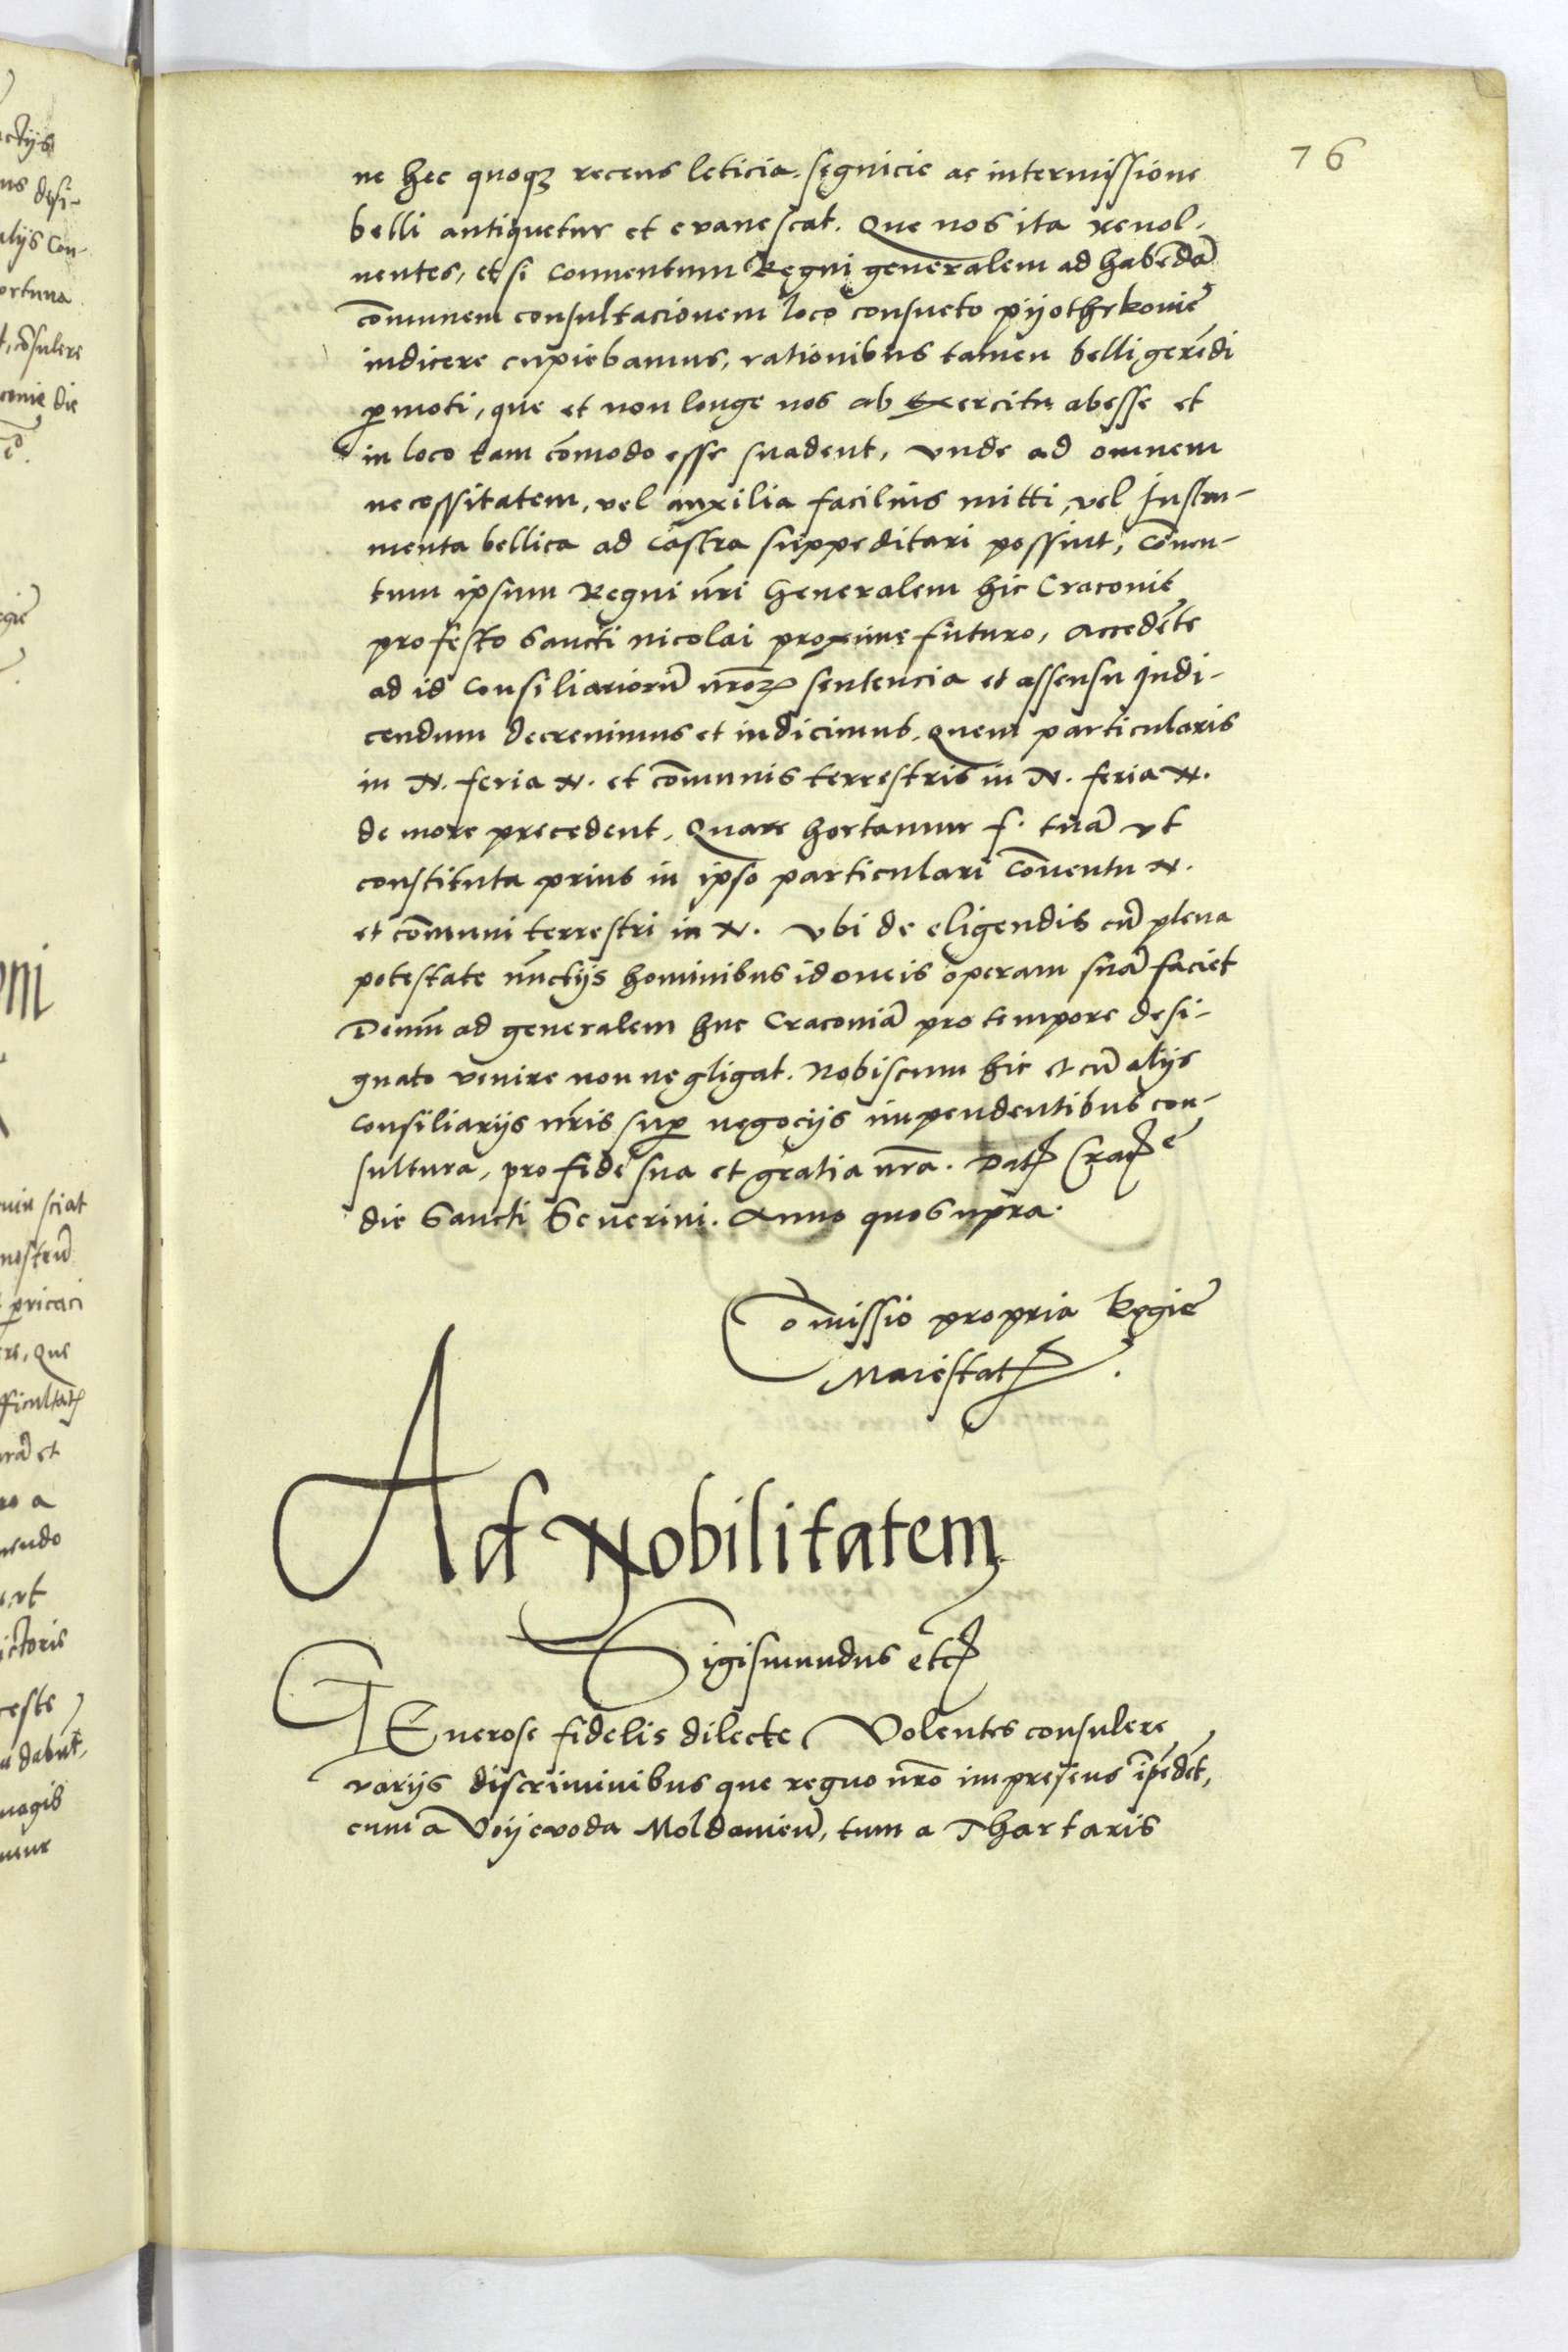 76
ne hec quoqꝫ recens leticia, sęgnicie ac intermissione
belli antiquetur et evanescat. Que nos ita revol-
uentes, et si conuentum Regni generalem ad habendā
cōmunem consultacionem loco consueto pijothrkouiē
indicere cupiebamus, rationibus tamen belli gerēdi
ꝑmoti, que et non longe nos ab exercitu abesse et
in loco tam cōmodo esse suadent, vnde ad omnem
necessitatem, vel auxilia facilius mitti, vel Instru-
menta bellica ad castra suppeditari possint, Conuen-
tum ipsum Regni nr̄i Generalem hic Cracouiē
pro festo Sancti Nicolai proxime futuro, accedēte
ad id Consiliariorū nr̄oꝝ sentencia et assensu Indi-
cendum decreuimus et indicimus. Quem particularis
in N. feria N. et cōmunis terrestris in N. feria N.
de more precedent. Quare hortamur f. tuā vt
constituta prius in ipso particulari Conuentu N.
et cōmuni terrestri in N. Vbi de eligendis cū plena
potestate nūctijs hominibus idoneis operam suā faciet
Demū ad generalem huc Cracouiā pro tempore desi-
gnato venire non nęgligat. Nobiscum hic et cū alijs
Consiliarijs nr̄is suꝑ nęgocijs impendentibus con-
sultura, pro fide sua et gratia nr̄a. Datꝭ Cracꝭē
die Sancti Seuerini. Anno quo supra.
Cōmissio propria Regiē
Maiestatꝭ.
Ad Nobilitatem
Sigismundus etcꝭ
GEnerose fidelis dilecte Volentes consulere
varijs discriminibus que regno nr̄o impresens īpēdēt,
cum a Voijevoda Moldauieñ, tum a Thartaris